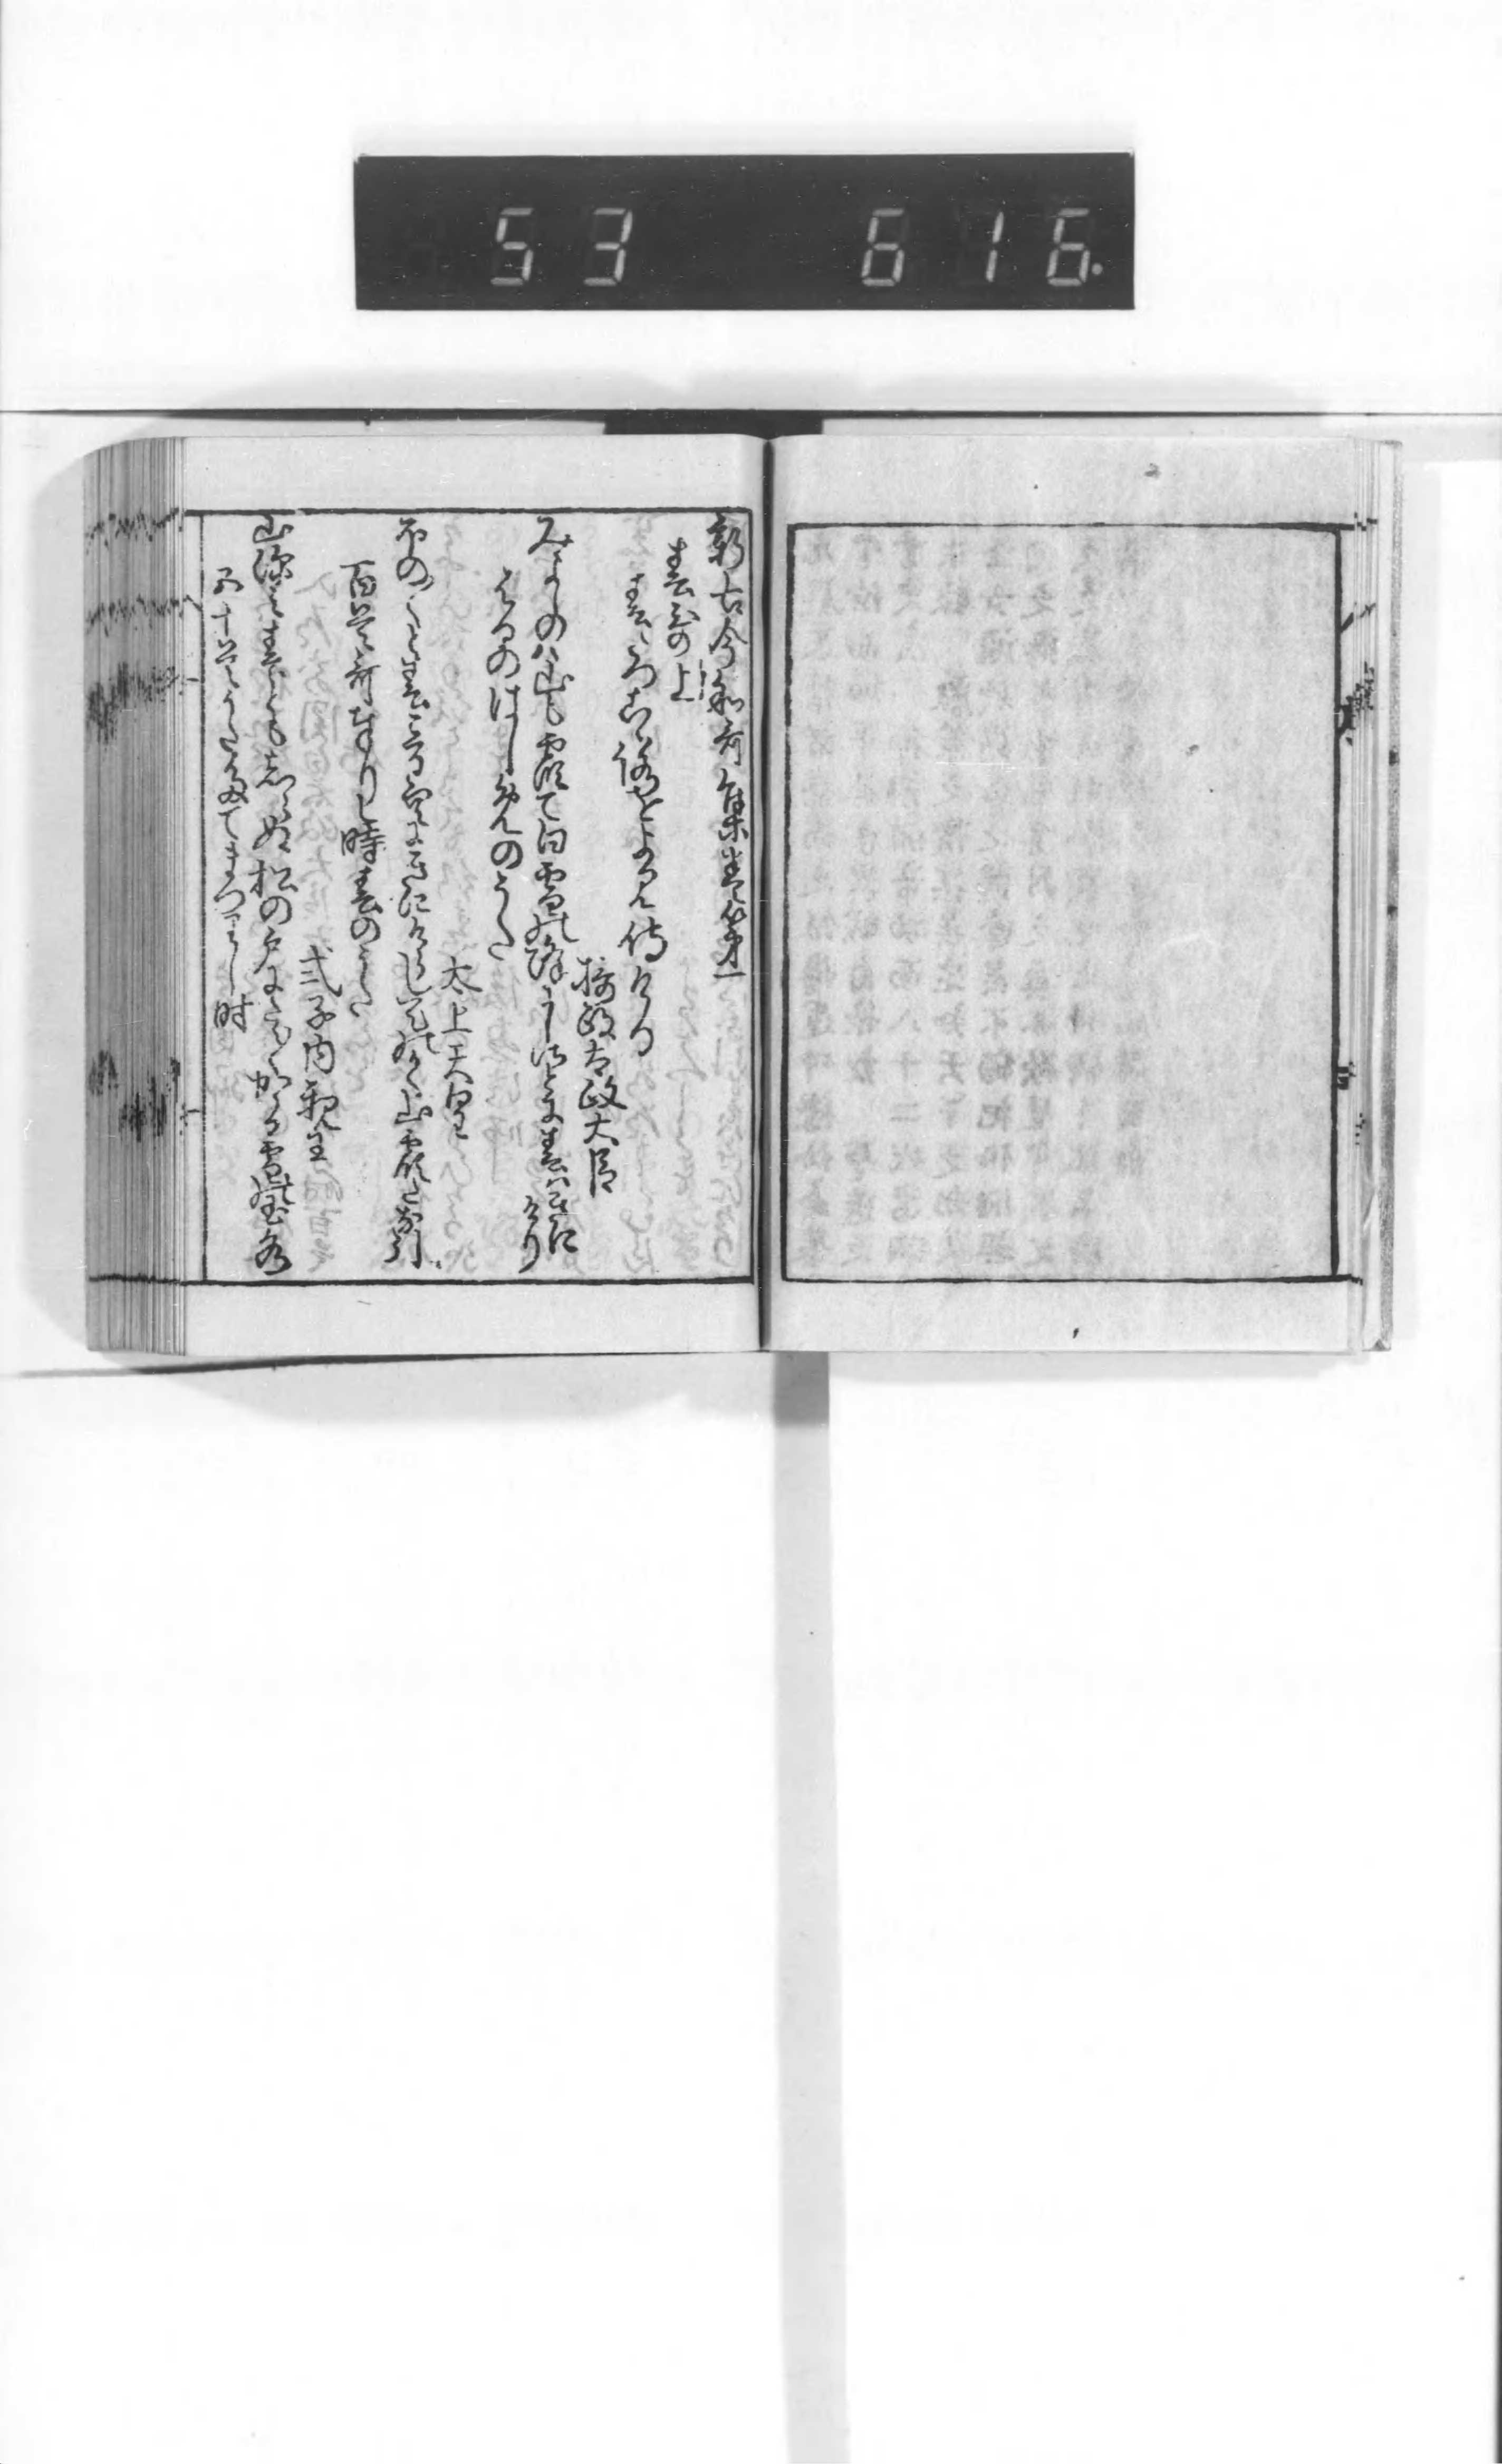 53 616.
新古今和歌集巻第一
春哥の上
春たつ心をよみ侍ける
摂政太政大臣
みよしのは山も霞て白雪のふりにし里に春はきに
けり
はるのはしめのうた
太上天皇
ほの〳〵と春こそ空にきにけらし天のかく山霞たな引
百首哥奉りし時春のうた
式子内親王
山深み春ともしらぬ松の戸にたえ〳〵かゝる雪の玉水
五十首うたたてまつりし時